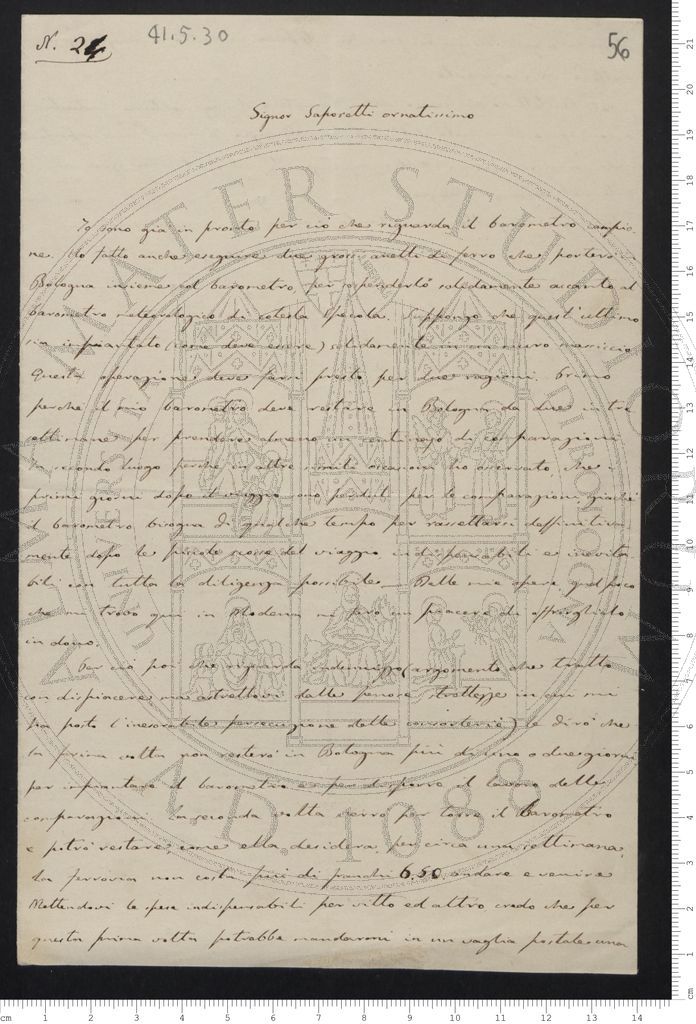 N. 24
41.5.30
56
Signor Saporetti ornatissimo
Io sono già in pronto per ciò che riguarda il barometro campio-
ne. Ho fatto anche eseguire due grossi anelli di ferro che porterò in
Bologna insieme col barometro per sospenderlo solidamente accanto al
barometro meteorologico di cotesta Specola. Suppongo che quest'ultimo
sia impiantato (come deve essere) solidamente in un muro massiccio
Questa operazione deve farsi presto per due ragioni. Primo
perché il mio barometro deve restare in Bologna da due in tre
settimane per prendere almeno un centinajo di comparazioni
In secondo luogo perché in altre simili occasioni ho osservato, che i
primi giorni dopo il viaggio sono perduti per le comparazioni giacché
il barometro bisogna di qualche tempo per rassettarsi deffinitiva-
mente dopo le piccole scosse del viaggio indispensabili e inevita-
bili con tutta la diligenza possibile. Delle mie opere quel poco
che mi trovo qui in Modena mi farò un piacere di offrirglielo
in dono.
Per ciò poi che riguarda indennizzo (argomento che tratto
con dispiacere, ma astrettovi dalle penose strettezze in cui mi
ha posto l'inesorabile persecuzione delle consorterie) le dirò che
la prima volta non resterò in Bologna più di uno o due giorni
per impiantare il barometro e per disporre il lavoro delle
comparazioni. La seconda volta verrò per torre il barometro
e potrò restare, come ella desidera, per circa una settimana.
La ferrovia non costa più di franchi 6.50 andare e venire
Mettendovi le spese indispensabili per vitto ed altro credo che per
questa prima volta potrebbe mandarmi in un vaglia postale una
ALMA MATER STUDIORUM
A.D. 1088